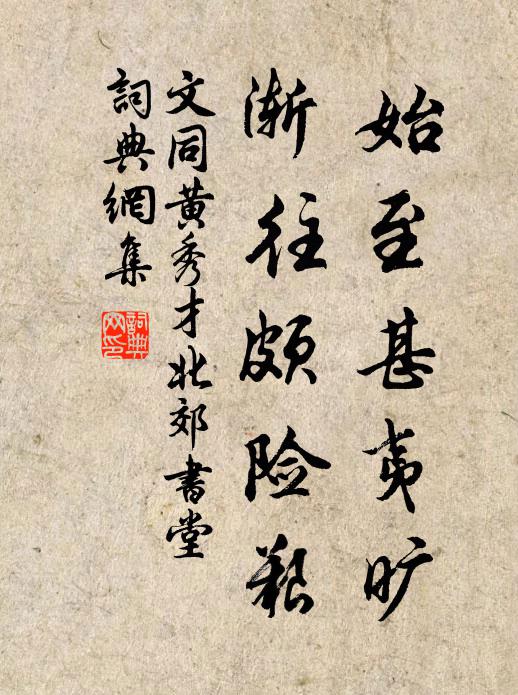 始至甚夷旷
渐往颇险艰
文同黄秀才北郊書堂
詞典網集
詞典网印